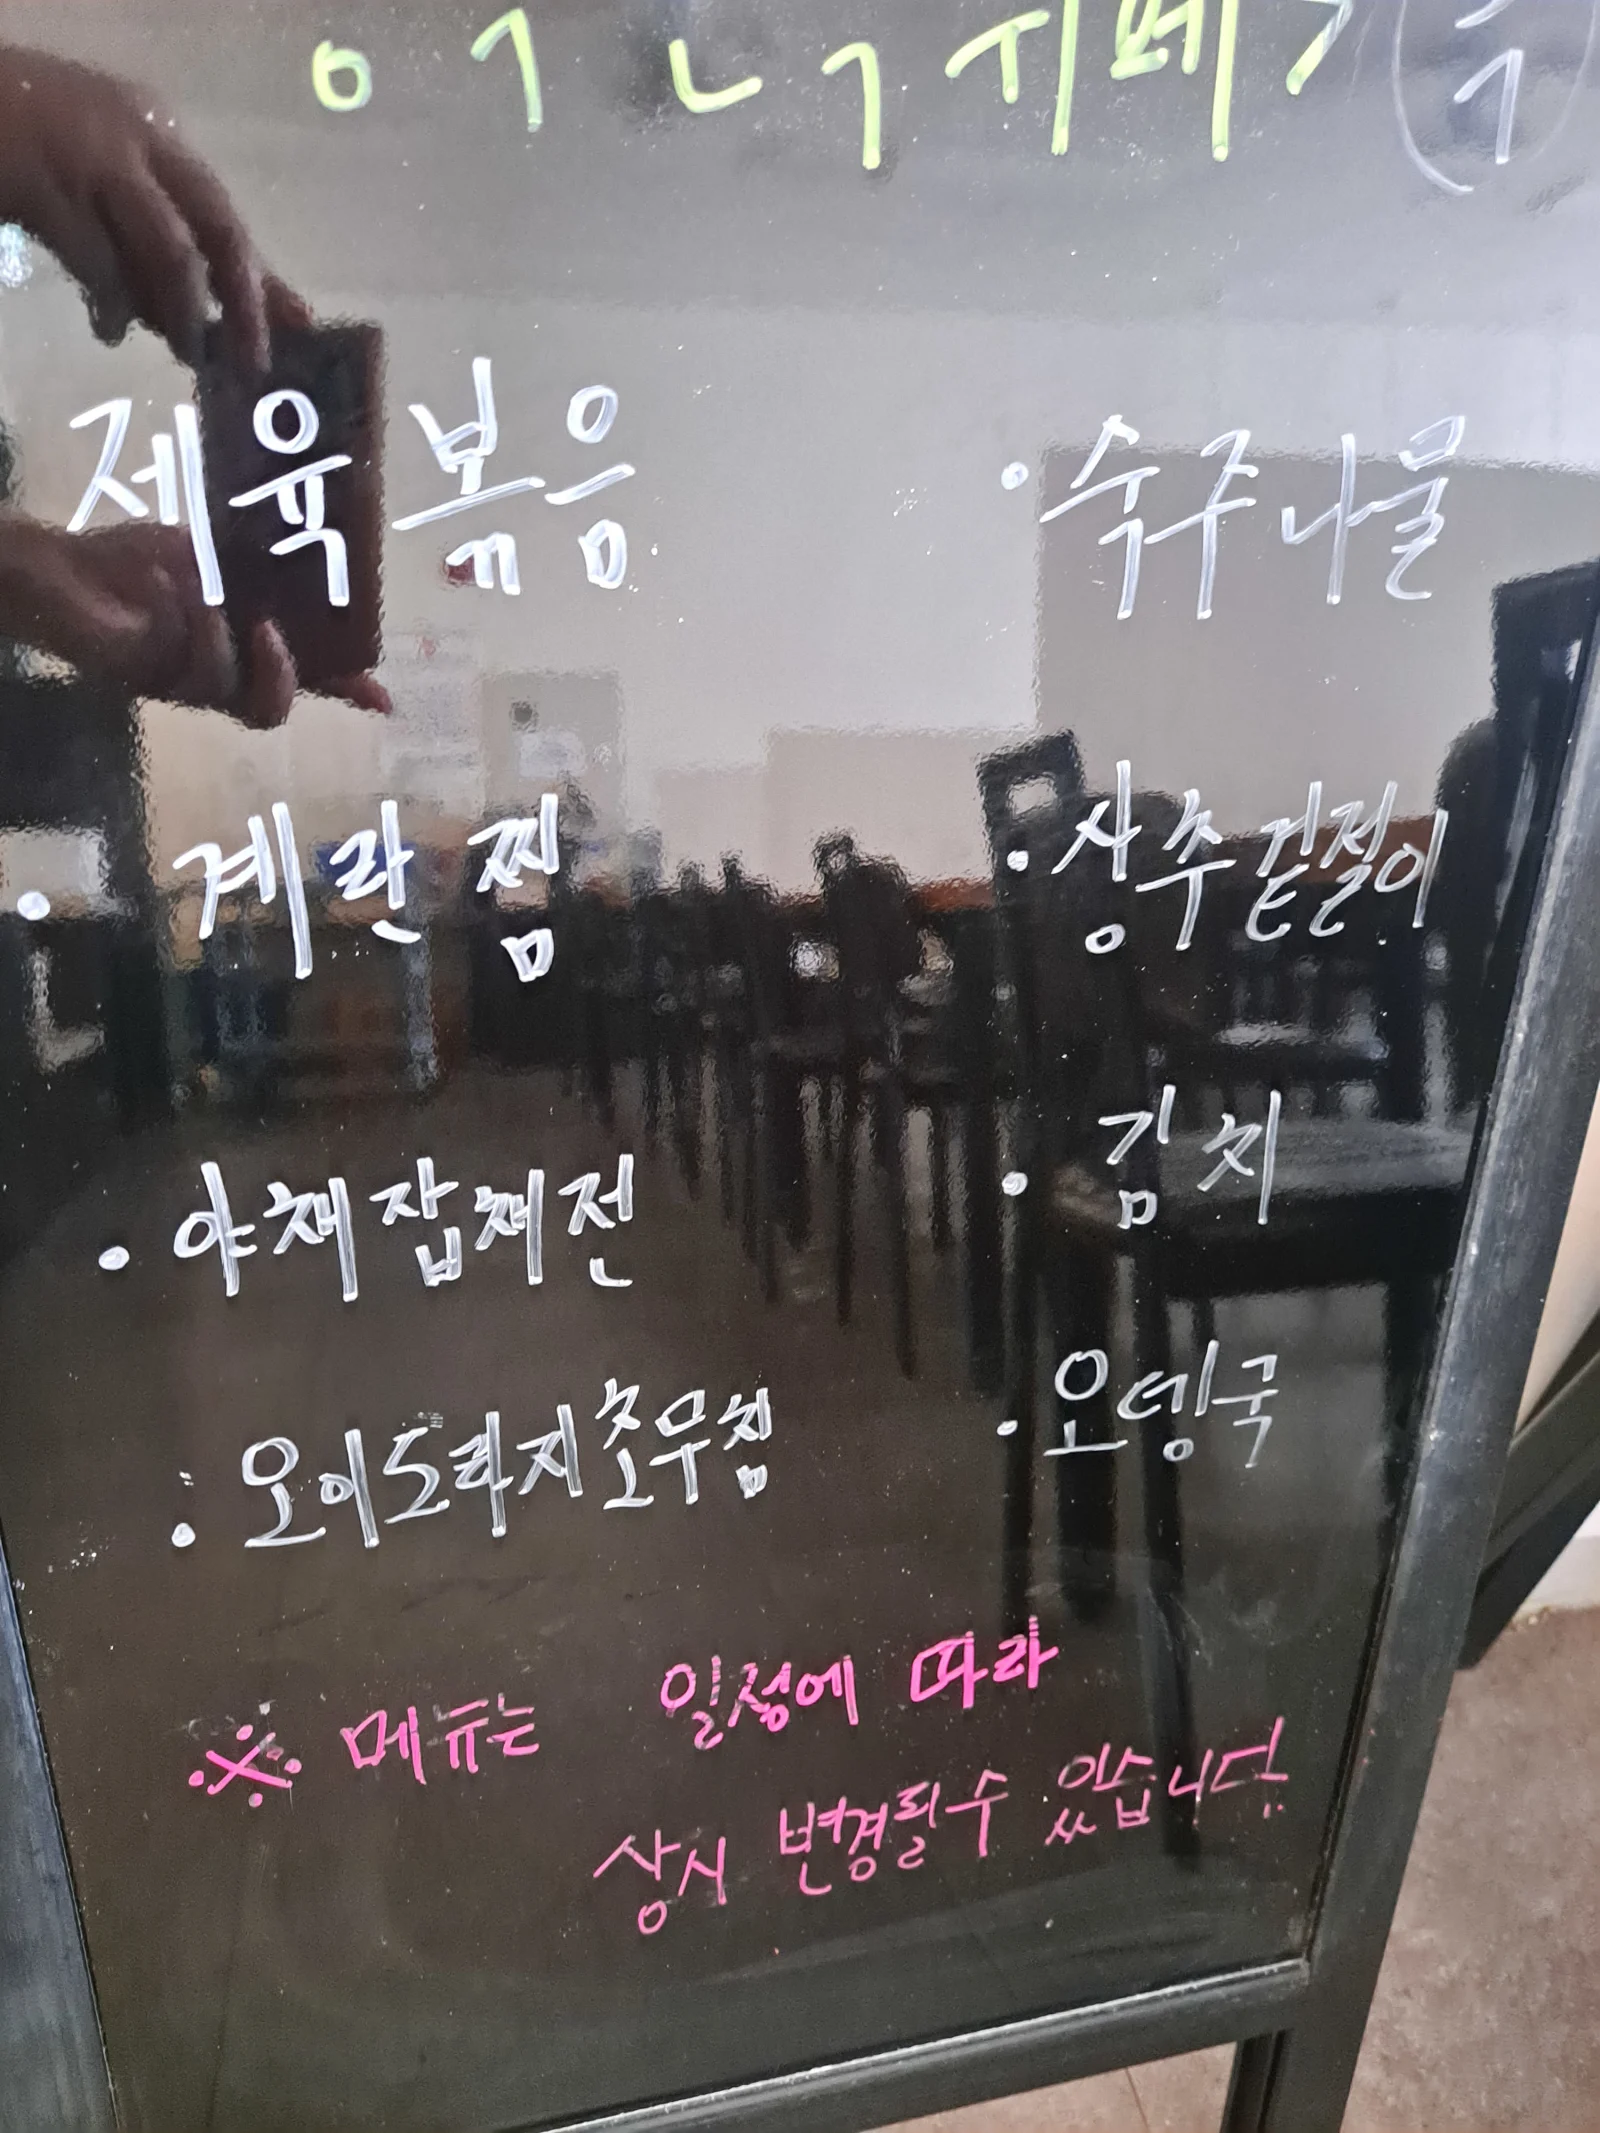 제육볶음
· 숙주나물
· 계란찜
· 상추겉절이
· 야채잡채전
· 김치
· 오이도라지초무침
· 오뎅국
※ 메뉴는 일정에 따라
상시 변경될수 있습니다.